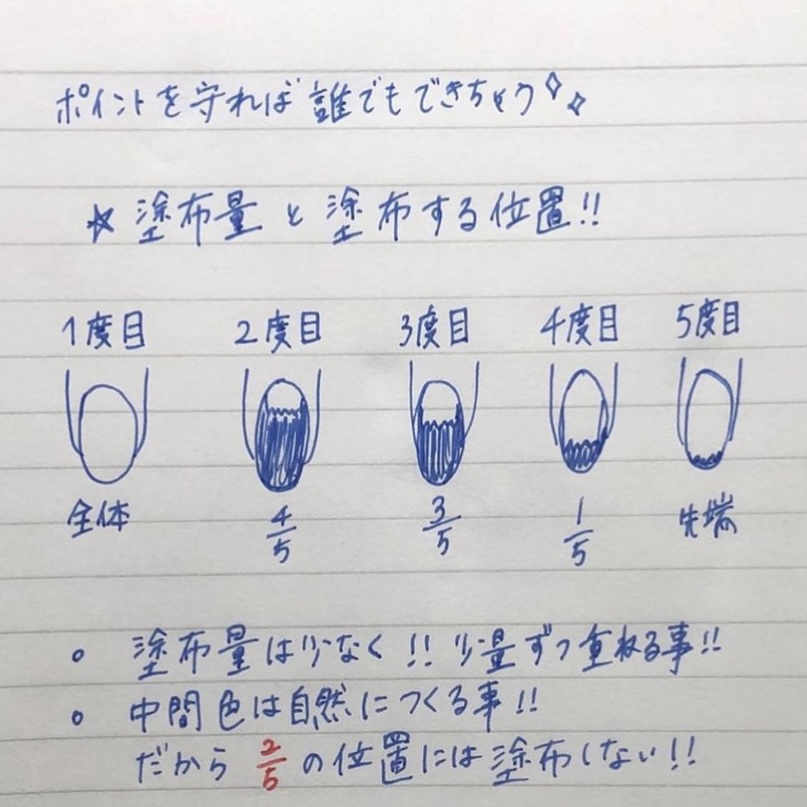 ポイントを守れば誰でもできちゃう
☆ 塗布量と塗布する位置!!
1度目 2度目 3度目 4度目 5度目
全体 4/5 3/5 1/5 先端
。塗布量は少なく!! 少量ずつ重ねる事!!
。中間色は自然につくる事!!
だから 2/5 の位置には塗布しない!!